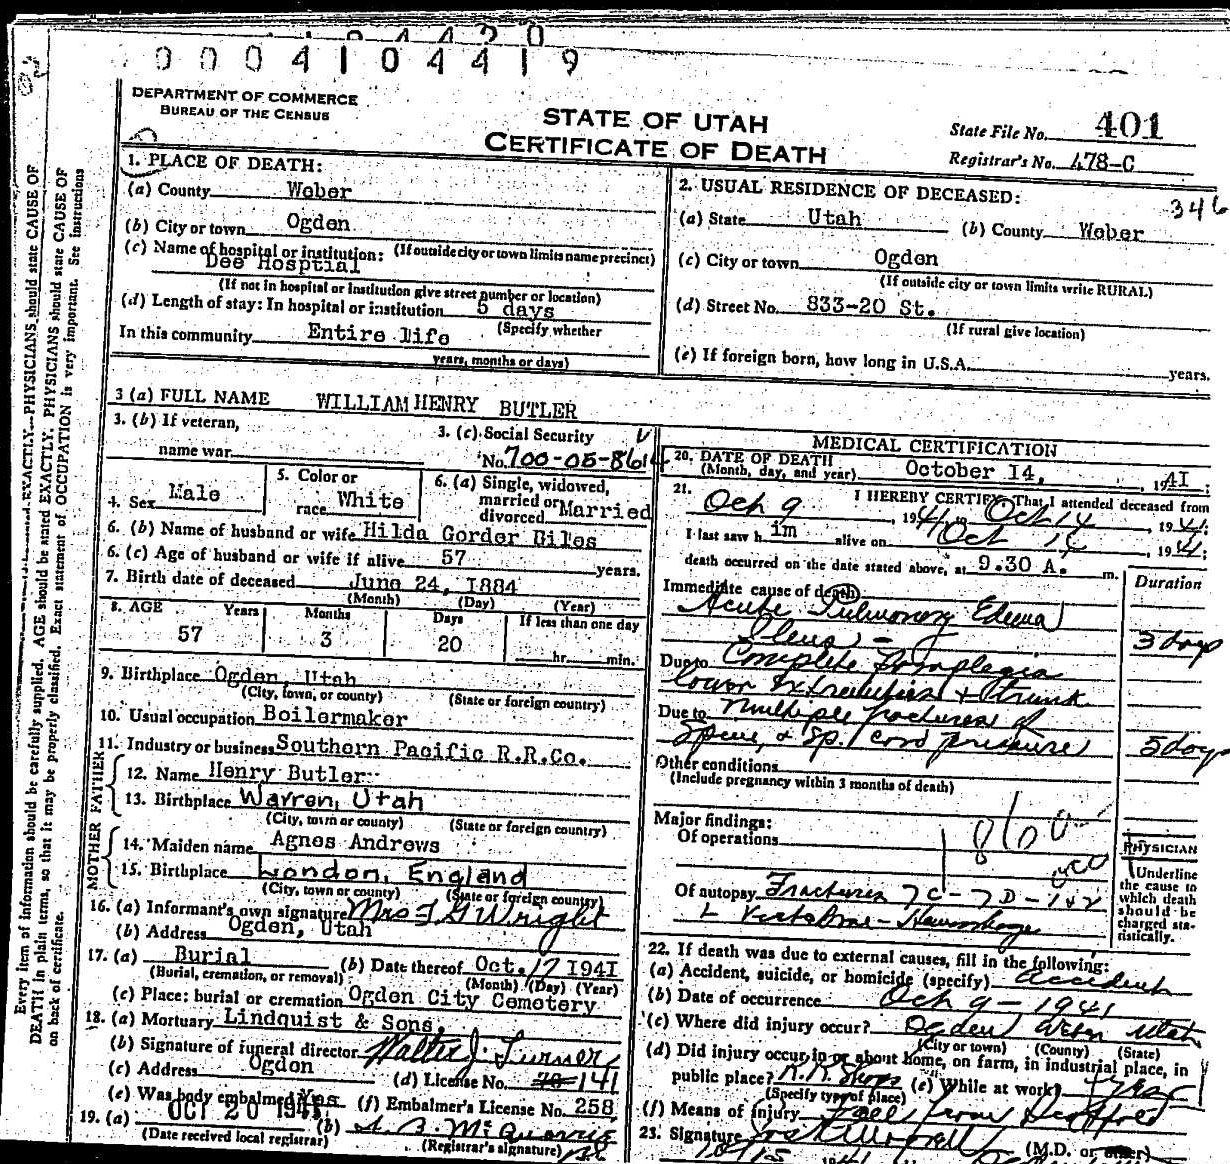 0004104419
DEPARTMENT OF COMMERCE
BUREAU OF THE CENSUS
STATE OF UTAH
CERTIFICATE OF DEATH
State File No. 401
Registrar's No. 478-C
1. PLACE OF DEATH:
(a) County Weber
(b) City or town Ogden
(c) Name of hospital or institution: (If outside city or town limits name precinct)
Dee Hosptial
(If not in hospital or institution give street number or location)
(d) Length of stay: In hospital or institution 5 days
(Specify whether
In this community Entire life
years, months or days)
2. USUAL RESIDENCE OF DECEASED:
346
(a) State Utah (b) County Weber
(c) City or town Ogden
(If outside city or town limits write RURAL)
(d) Street No. 833-20 St.
(If rural give location)
(e) If foreign born, how long in U.S.A. years.
3 (a) FULL NAME WILLIAM HENRY BUTLER
3. (b) If veteran,
name war
3. (c) Social Security
No. 700-05-8614
4. Sex Male
5. Color or
race White
6. (a) Single, widowed,
married or
divorced Married
6. (b) Name of husband or wife Hilda Gorder Biles
6. (c) Age of husband or wife if alive 57 years.
7. Birth date of deceased June 24, 1884
(Month) (Day) (Year)
8. AGE Years Months Days If less than one day
57 3 20 hr. min.
9. Birthplace Ogden, Utah
(City, town, or county) (State or foreign country)
10. Usual occupation Boilermaker
11. Industry or business Southern Pacific R.R.Co.
FATHER
12. Name Henry Butler
13. Birthplace Warren, Utah
(City, town or county) (State or foreign country)
MOTHER
14. Maiden name Agnes Andrews
15. Birthplace London, England
(City, town or county) (State or foreign country)
16. (a) Informant's own signature Mrs J G Wright
(b) Address Ogden, Utah
17. (a) Burial (b) Date thereof Oct. 17 1941
(Burial, cremation, or removal) (Month) (Day) (Year)
(c) Place: burial or cremation Ogden City Cemetery
18. (a) Mortuary Lindquist & Sons,
(b) Signature of funeral director Walter J. Turner
(c) Address Ogden (d) License No. 141
(e) Was body embalmed Yes (f) Embalmer's License No. 258
19. (a) OCT 20 1941 (b)
(Date received local registrar) (Registrar's signature)
MEDICAL CERTIFICATION
20. DATE OF DEATH
(Month, day, and year) October 14, 1941
21. I HEREBY CERTIFY, That I attended deceased from
Oct 9, 1941 to Oct 14 1941;
I last saw h im alive on Oct 14 1941;
death occurred on the date stated above, at 9.30 A. m.
Duration
Immediate cause of death
Acute Pulmonary Edema
Ileus - 3 days
Due to Complete Paraplegia
lower extremities & trunk
Due to multiple fractures of
Spine, & sp. cord pressure 5 days
Other conditions
(Include pregnancy within 3 months of death)
Major findings:
Of operations
Of autopsy Fractures 7C-7D-1&2
L Vertebrae - Hemorrhage
PHYSICIAN
Underline
the cause to
which death
should be
charged sta-
tistically.
22. If death was due to external causes, fill in the following:
(a) Accident, suicide, or homicide (specify) Accident
(b) Date of occurrence Oct 9-1941
(c) Where did injury occur? Ogden Weber Utah
(City or town) (County) (State)
(d) Did injury occur in or about home, on farm, in industrial place, in
public place? R.R. Shops (e) While at work?
(Specify type of place)
(f) Means of injury Fall from Scaffold
23. Signature (M.D. or other)
Every item of information should be carefully supplied. AGE should be stated EXACTLY. PHYSICIANS should state CAUSE OF
DEATH in plain terms, so that it may be properly classified. Exact statement of OCCUPATION is very important. See instructions
on back of certificate.